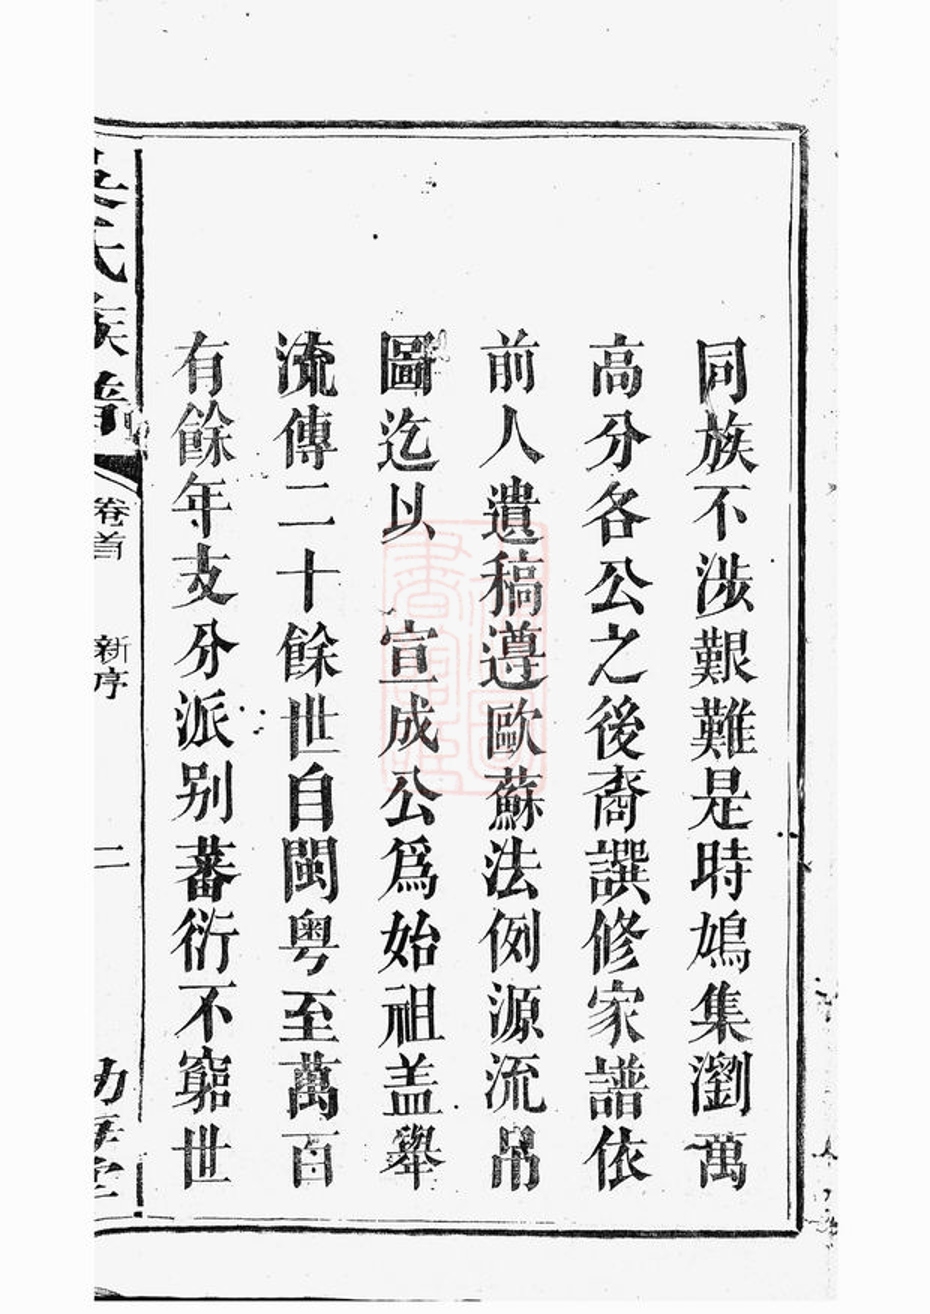 同族不涉艱難是時鳩集瀏萬
高分各公之後裔譔修家譜依
前人遺稿遵歐蘇法例源流吊
圖迄以 宣成公爲始祖盖舉
流傳二十餘世自閩粵至萬百
有餘年支分派别蕃衍不窮世
氏族譜 卷首 新序 二